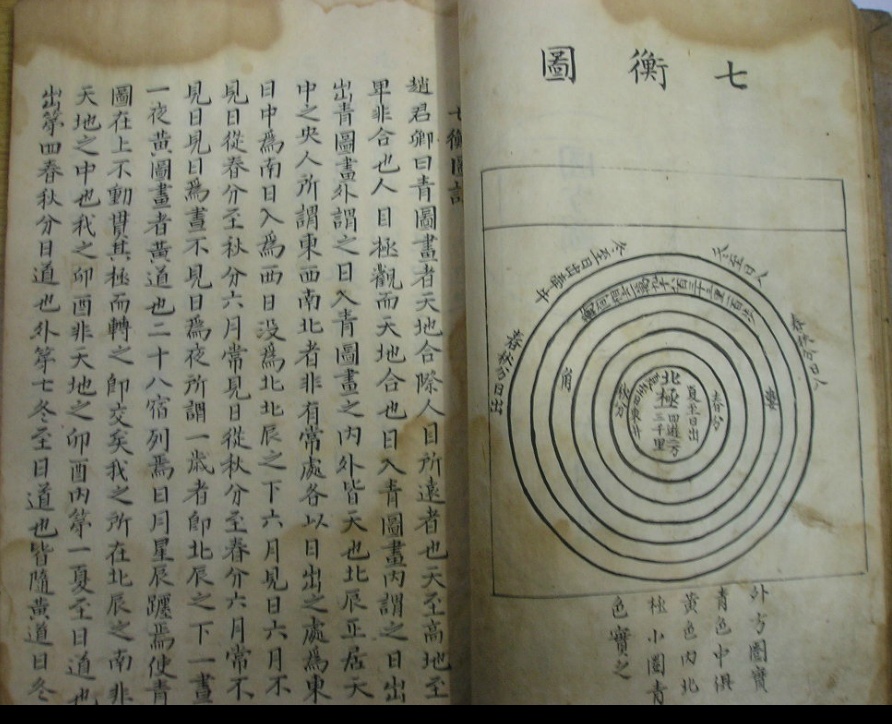 七衡圖
冬至日出牽牛
夏至日出
春分
春秋分日出
角
婁
北極
四遊一萬
三千里
夏至日出
東井
外方圈實
青色中俱
黃色內北
極小圈青
色實之
七衡圖註
趙君卿曰青圖畫者天地合際人目所遠者也天至高地至
卑非合也人目極觀而天地合也日入青圖畫內謂之日出
出青圖畫外謂之日入青圖畫之內外皆天也北辰正居天
中之央人所謂東西南北者非有常處各以日出之處為東
日中為南日入為西日没為北北辰之下六月見日六月不
見日從春分至秋分六月常見日從秋分至春分六月常不
見日見日為晝不見日為夜所謂一歲者即北辰之下一晝
一夜黃圖畫者黃道也二十八宿列焉日月星辰躔焉使青
圖在上不動貫其極而轉之即交矣我之所在北辰之南非
天地之中也我之卯酉非天地之卯酉內第一夏至日道也
出第四春秋分日道也外第七冬至日道也皆隨黃道日冬